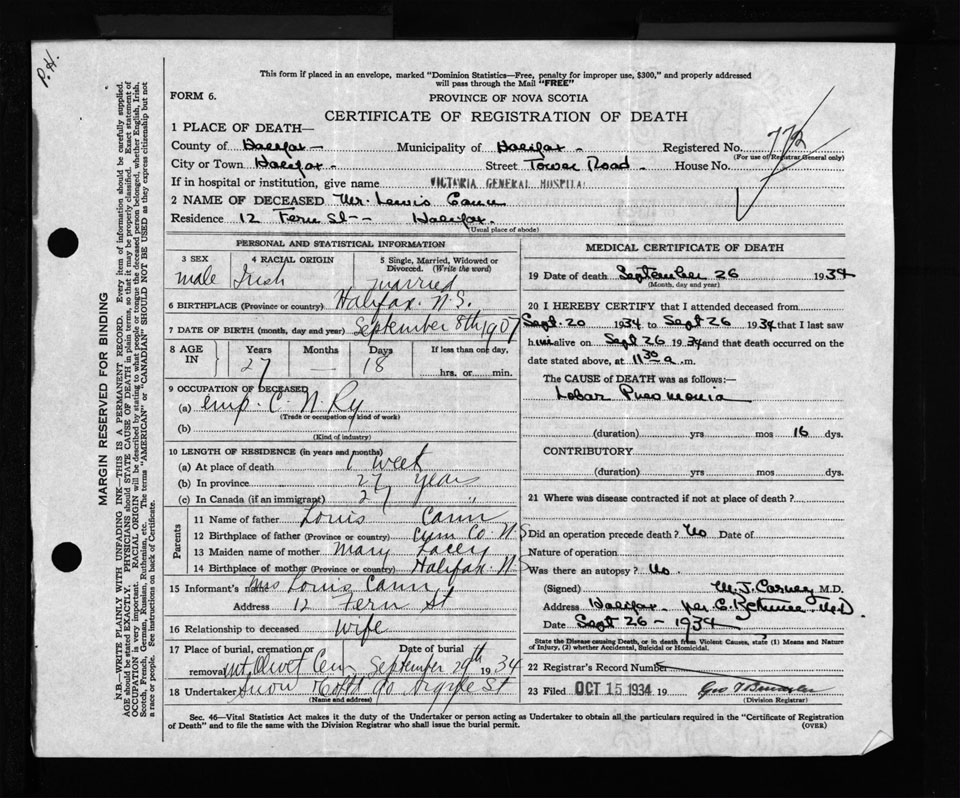 P.H.
This form if placed in an envelope, marked "Dominion Statistics—Free, penalty for improper use, $300," and properly addressed
will pass through the Mail "FREE"
FORM 6.
PROVINCE OF NOVA SCOTIA
CERTIFICATE OF REGISTRATION OF DEATH
1 PLACE OF DEATH—
County of Halifax — Municipality of Halifax — Registered No. 772
(For use of Registrar General only)
City or Town Halifax — Street Tower Road — House No.
If in hospital or institution, give name VICTORIA GENERAL HOSPITAL
2 NAME OF DECEASED Mr. Lewis Cann
Residence 12 Fern St -- Halifax.
(Usual place of abode)
PERSONAL AND STATISTICAL INFORMATION
3 SEX 4 RACIAL ORIGIN 5 Single, Married, Widowed or Divorced. (Write the word)
male Irish married
6 BIRTHPLACE (Province or country) Halifax. N.S.
7 DATE OF BIRTH (month, day and year) September 8th 1907
8 AGE IN Years Months Days If less than one day,
27 — 18 hrs. or min.
9 OCCUPATION OF DECEASED
(a) emp. C. N. Ry
(Trade or occupation or kind of work)
(b)
(Kind of industry)
10 LENGTH OF RESIDENCE (in years and months)
(a) At place of death 1 week
(b) In province 27 years
(c) In Canada (if an immigrant) 27 "
Parents
11 Name of father Louis Cann
12 Birthplace of father (Province or country) Co. N.S
13 Maiden name of mother Mary Lacey
14 Birthplace of mother (Province or country) Halifax. N.S
15 Informant's name Mrs Louis Cann
Address 12 Fern St
16 Relationship to deceased wife
17 Place of burial, cremation or removal Date of burial
Mt Olivet Cem September 29th 1934
18 Undertaker Snow & Co Ltd 90 Argyle St
(Name and address)
MEDICAL CERTIFICATE OF DEATH
19 Date of death September 26 1934
(Month, day and year)
20 I HEREBY CERTIFY that I attended deceased from
Sept. 20 1934 to Sept 26 1934 that I last saw
him alive on Sept 26 1934 and that death occurred on the
date stated above, at 11 30 a .m.
The CAUSE of DEATH was as follows:—
Lobar Pneumonia
(duration) yrs mos 16 dys.
CONTRIBUTORY
(duration) yrs mos dys.
21 Where was disease contracted if not at place of death?
Did an operation precede death? No Date of
Nature of operation
Was there an autopsy? No.
(Signed) M. J. Carney M.D.
Address Halifax. per M.D.
Date Sept 26 - 1934
State the Disease causing Death, or in death from Violent Causes, state (1) Means and Nature
of Injury, (2) whether Accidental, Suicidal or Homicidal.
22 Registrar's Record Number
23 Filed OCT 15 1934 19
(Division Registrar)
Sec. 46—Vital Statistics Act makes it the duty of the Undertaker or person acting as Undertaker to obtain all the particulars required in the "Certificate of Registration
of Death" and to file the same with the Division Registrar who shall issue the burial permit.
(OVER)
MARGIN RESERVED FOR BINDING
N.B.—WRITE PLAINLY WITH UNFADING INK—THIS IS A PERMANENT RECORD. Every item of information should be carefully supplied.
AGE should be stated EXACTLY. PHYSICIANS should STATE CAUSE OF DEATH in plain terms, so that it may be properly classified. Exact statement of
OCCUPATION is very important. RACIAL ORIGIN will be described by stating to what people or tongue the deceased person belonged, whether English, Irish,
Scotch, French, German, Russian, Ruthenian, etc. The terms "AMERICAN" or "CANADIAN" SHOULD NOT BE USED as they express citizenship but not
a race or people. See instructions on back of Certificate.